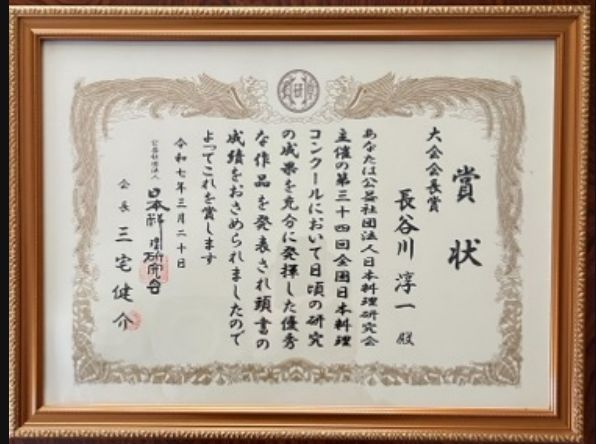 賞状
大会会長賞
長谷川淳一殿
あなたは公益社団法人日本料理研究会
主催の第三十四回全国日本料理
コンクールにおいて日頃の研究
の成果を充分に発揮した優秀
な作品を発表され頭書の
成績をおさめられましたので
よってこれを賞します
令和七年三月二十日
公益社団法人
日本料理研究会
会長 三宅健介